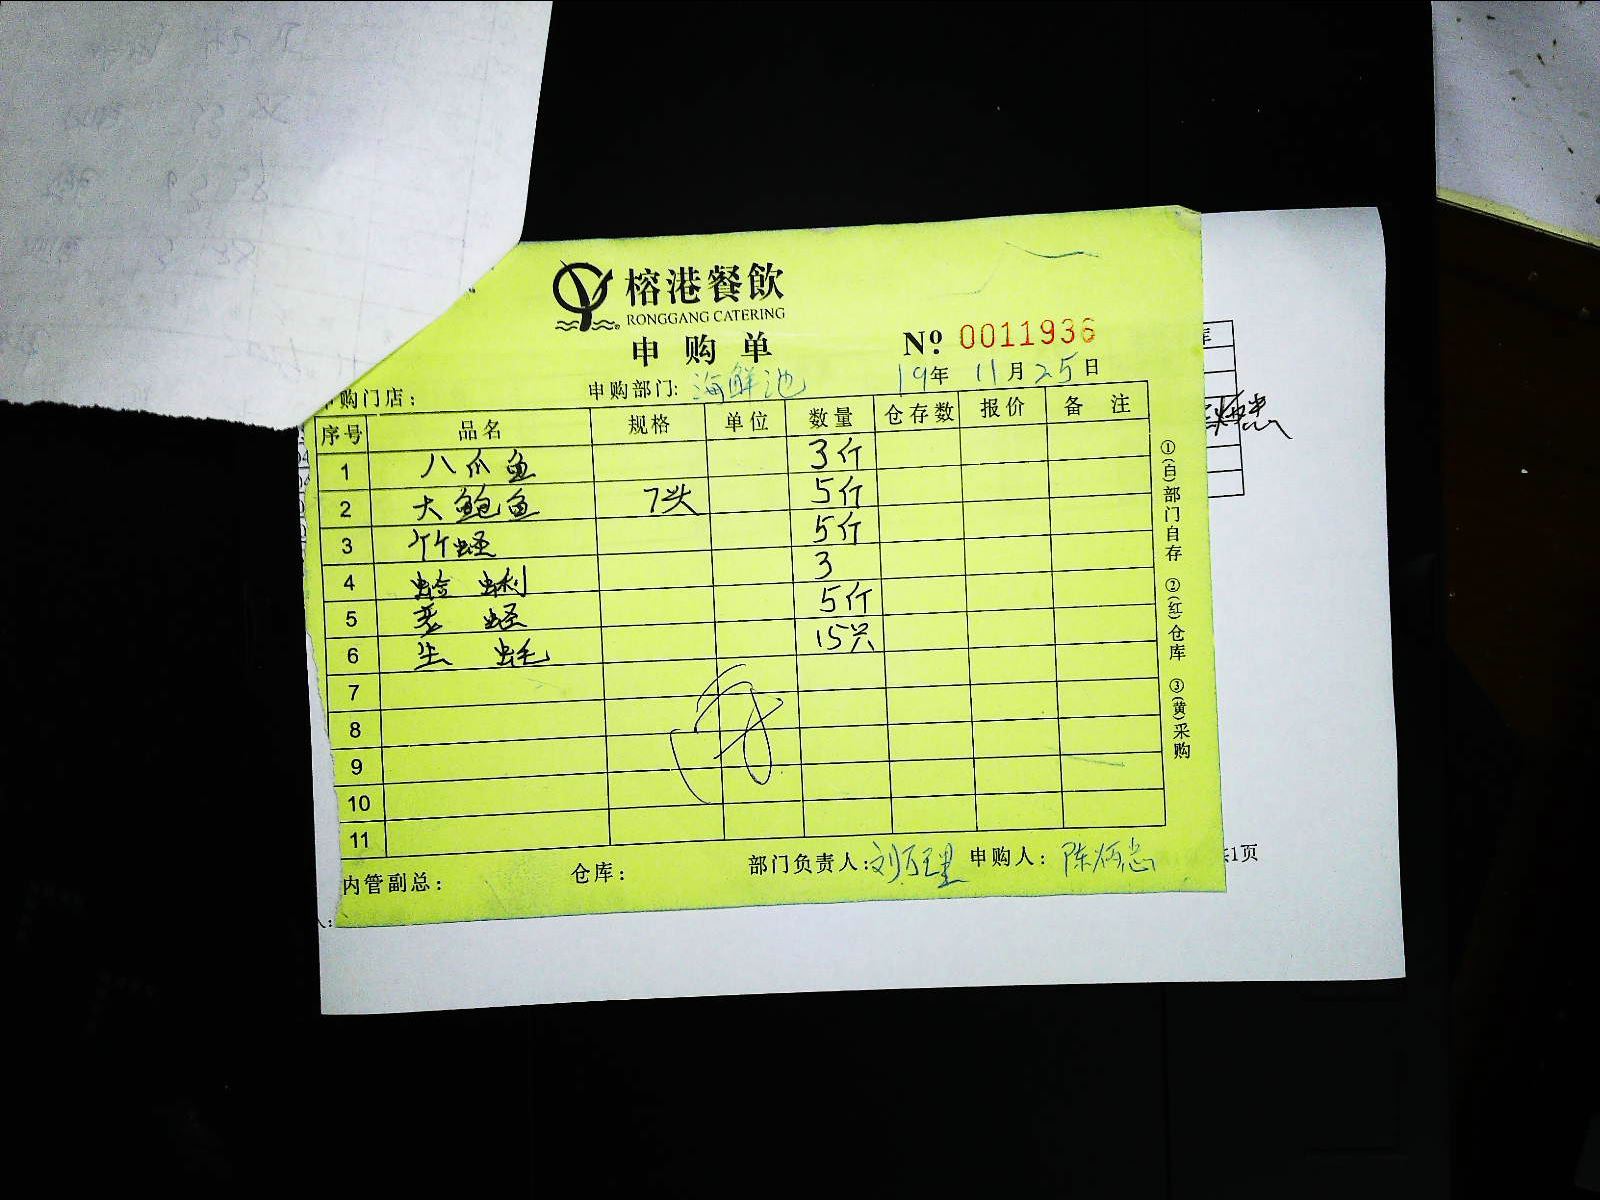 榕港餐飲
RONGGANG CATERING
申购单
№ 0011936
购门店： 申购部门: 海鲜池 19年 11月25日
序号 品名 规格 单位 数量 仓存数 报价 备注
1 八爪鱼 3斤
2 大鲍鱼 7头 5斤
3 竹蛏 5斤
4 蛤蜊 3
5 老蛏 5斤
6 生蚝 15只
7
8
9
10
11
内管副总： 仓库： 部门负责人: 刘万里 申购人: 陈炳忠
①(白)部门自存 ②(红)仓库 ③(黄)采购
库
共1页